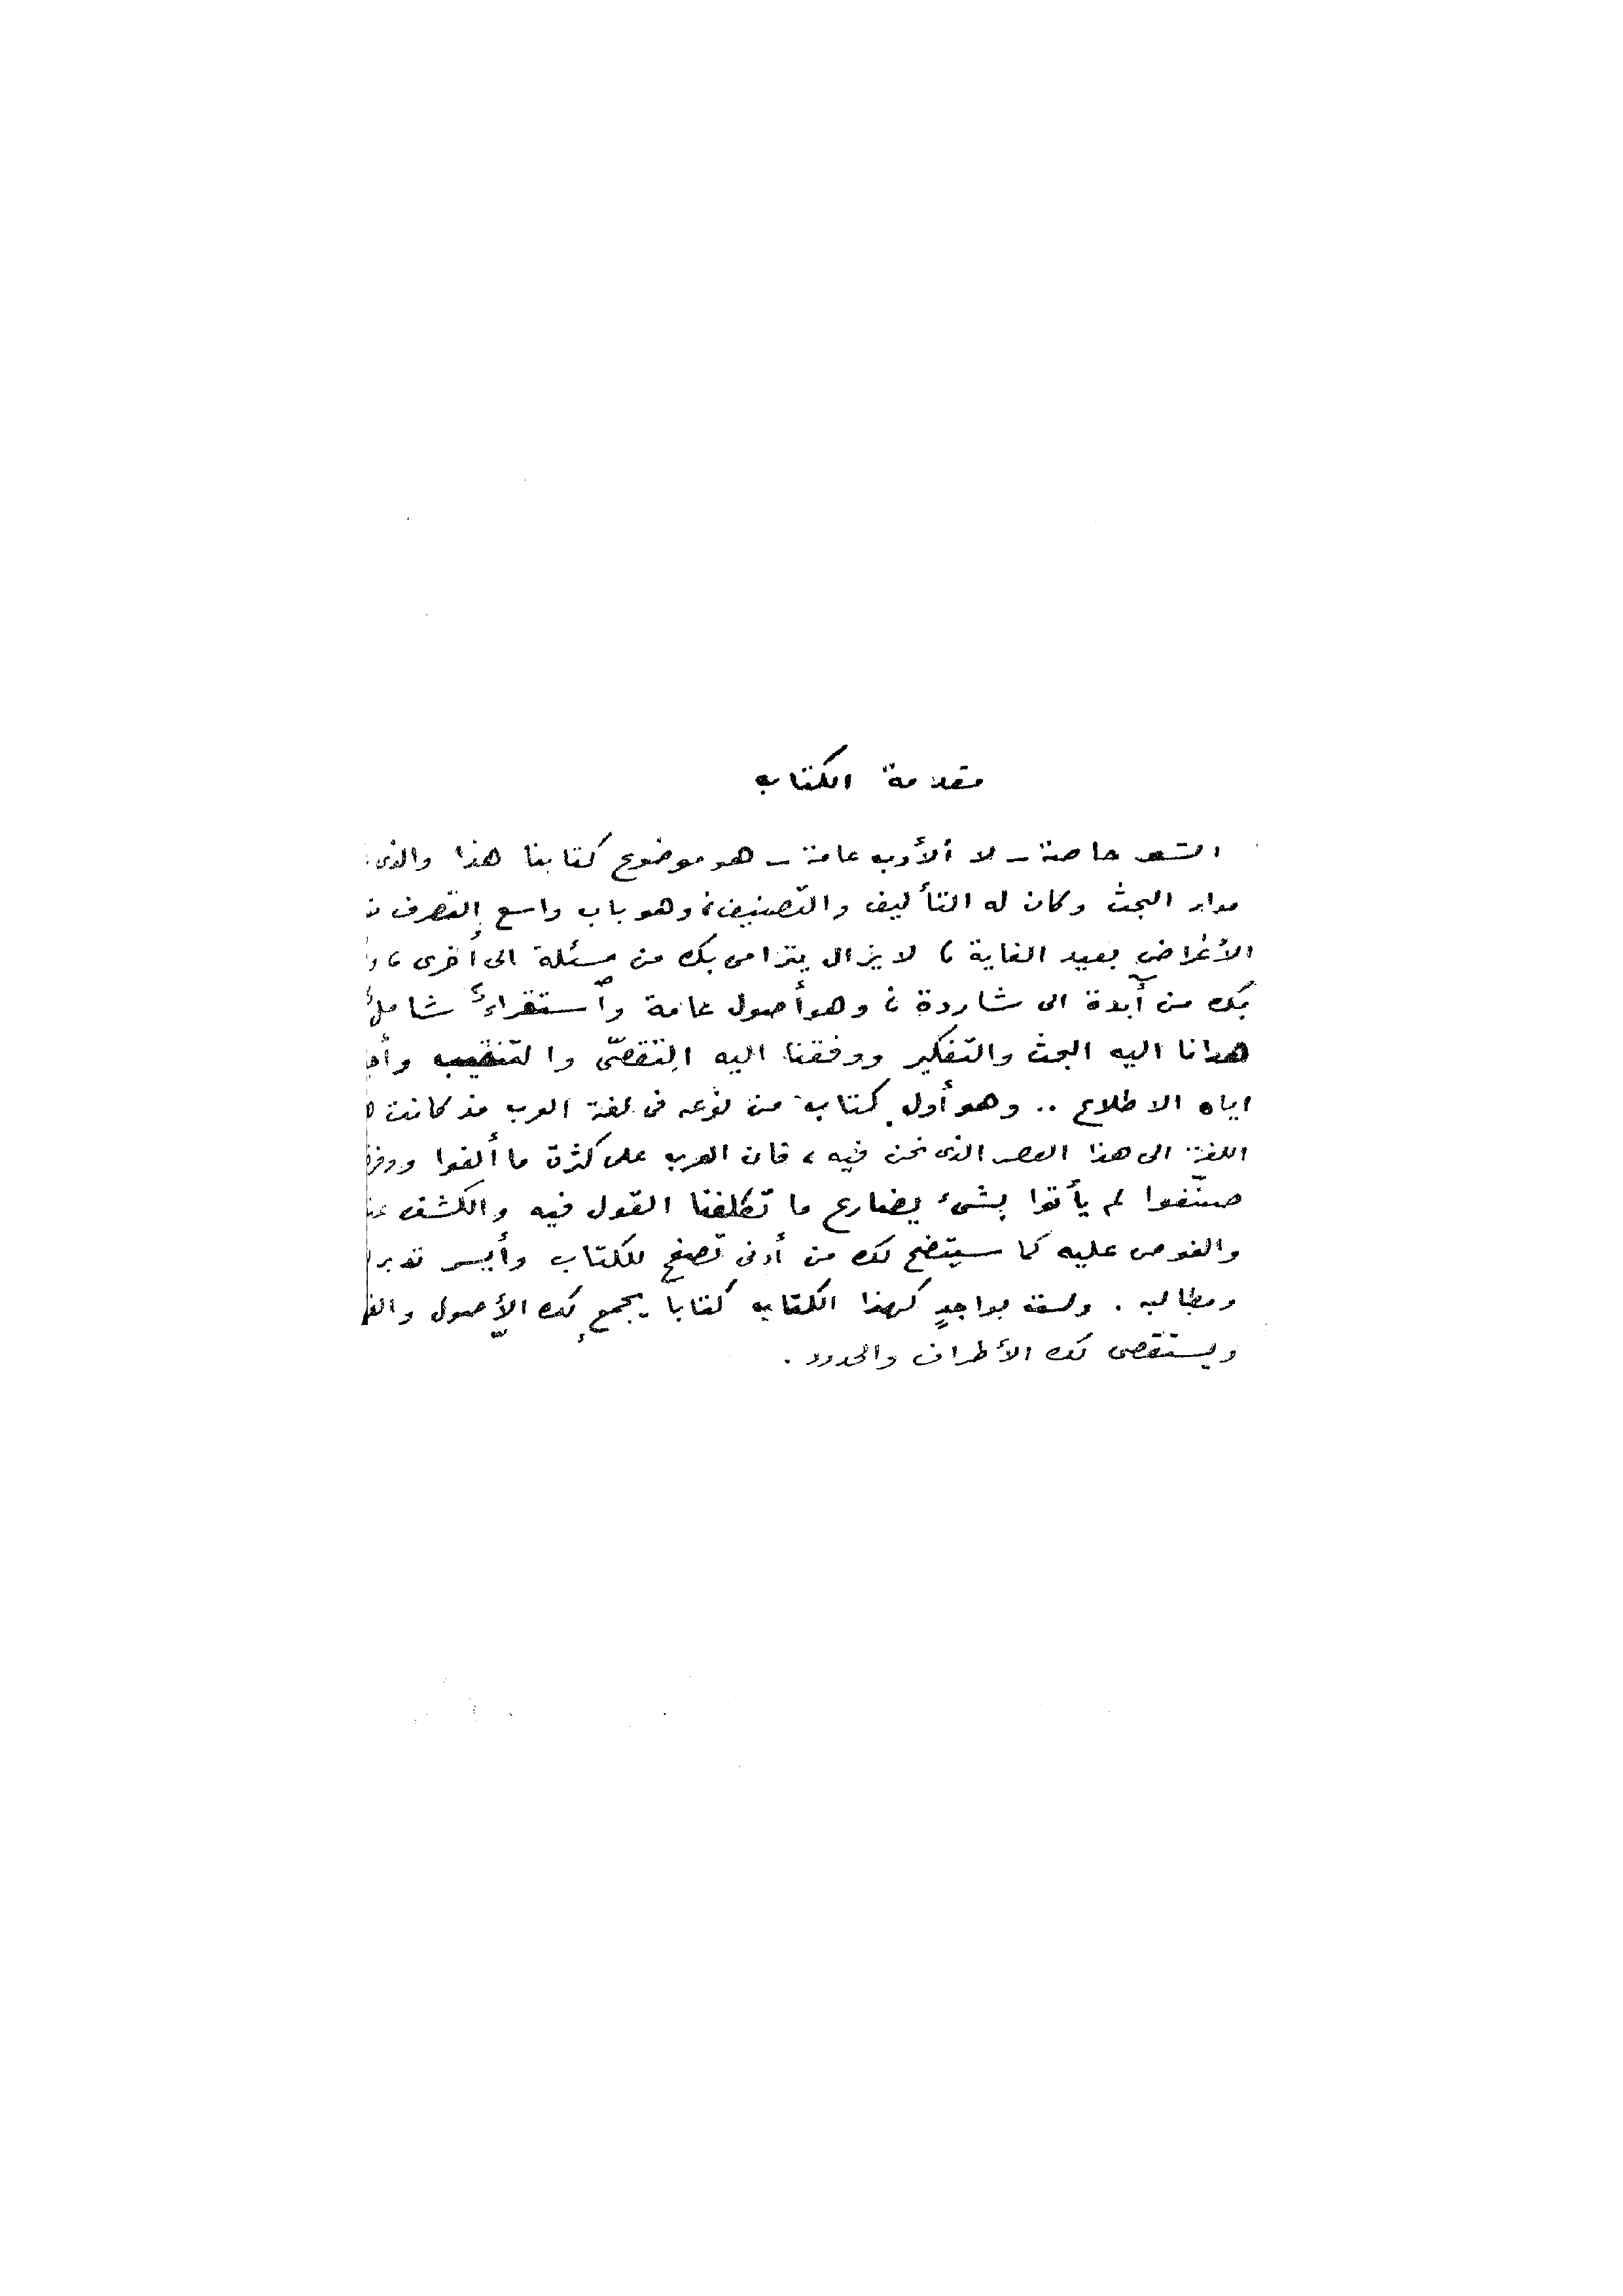 مقدمة الكتاب
الشعر خاصة ـ لا الأدب عامة ـ هو موضوع كتابنا هذا والذى
مدار البحث وكان له التأليف والتصنيف؛ وهو باب واسع التصرف
الأغراض بعيد الغاية ، لا يزال يترامى بك من مسئلة الى أخرى ،
بك من آبدة الى شاردة ؛ وهو أصول عامة واستقراء شامل
هدانا اليه البحث والتفكير ووفقنا اليه التقصّى والتنقيب
اياه الاطلاع .. وهو أول كتاب من نوعه فى لغة العرب مذ كانت
اللغة الى هذا العصر الذى نحن فيه ، فان العرب على كثرة ما ألفوا
صنّفوا لم يأتوا بشىء يضارع ما تكلفنا القول فيه والكشف
والغوص عليه كما سيتضح لك من أدنى تصفح للكتاب وأيسر تدبر
ومطالبه . ولست بواجدٍ كهذا الكتاب كتابا يجمع لك الأصول
ويستقصى لك الأطراف والحدود .